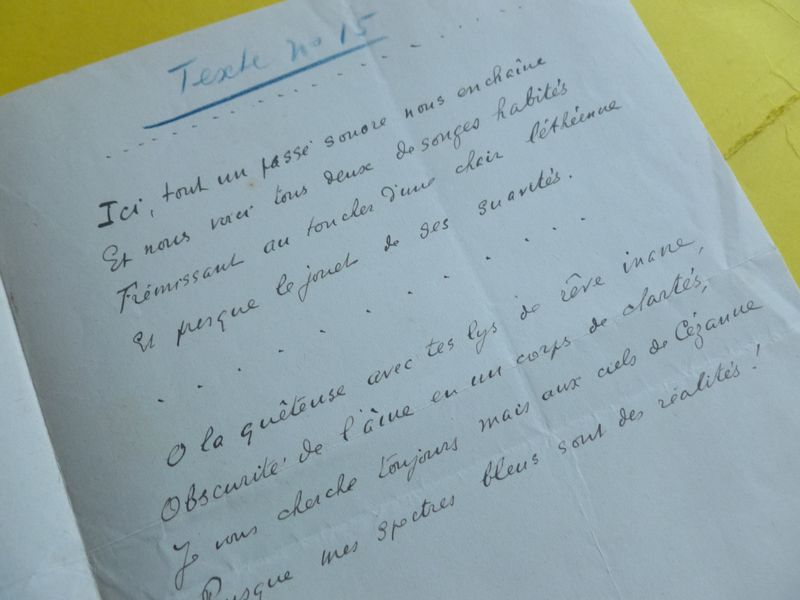 Texte no 15
. . . . . . . . . . . . . . . . .
Ici, tout un passé sonore nous enchaîne
Et nous voici tous deux de songes habités
Frémissant au toucher d'une chair léthéenne
Et presque le jouet de ses suavités.
. . . . . . . . . . . .
O la quêteuse avec tes lys de rêve inane,
Obscurité de l'âme en un corps de clartés,
Je vous cherche toujours mais aux ciels de Cézanne
Puisque mes spectres bleus sont des réalités !